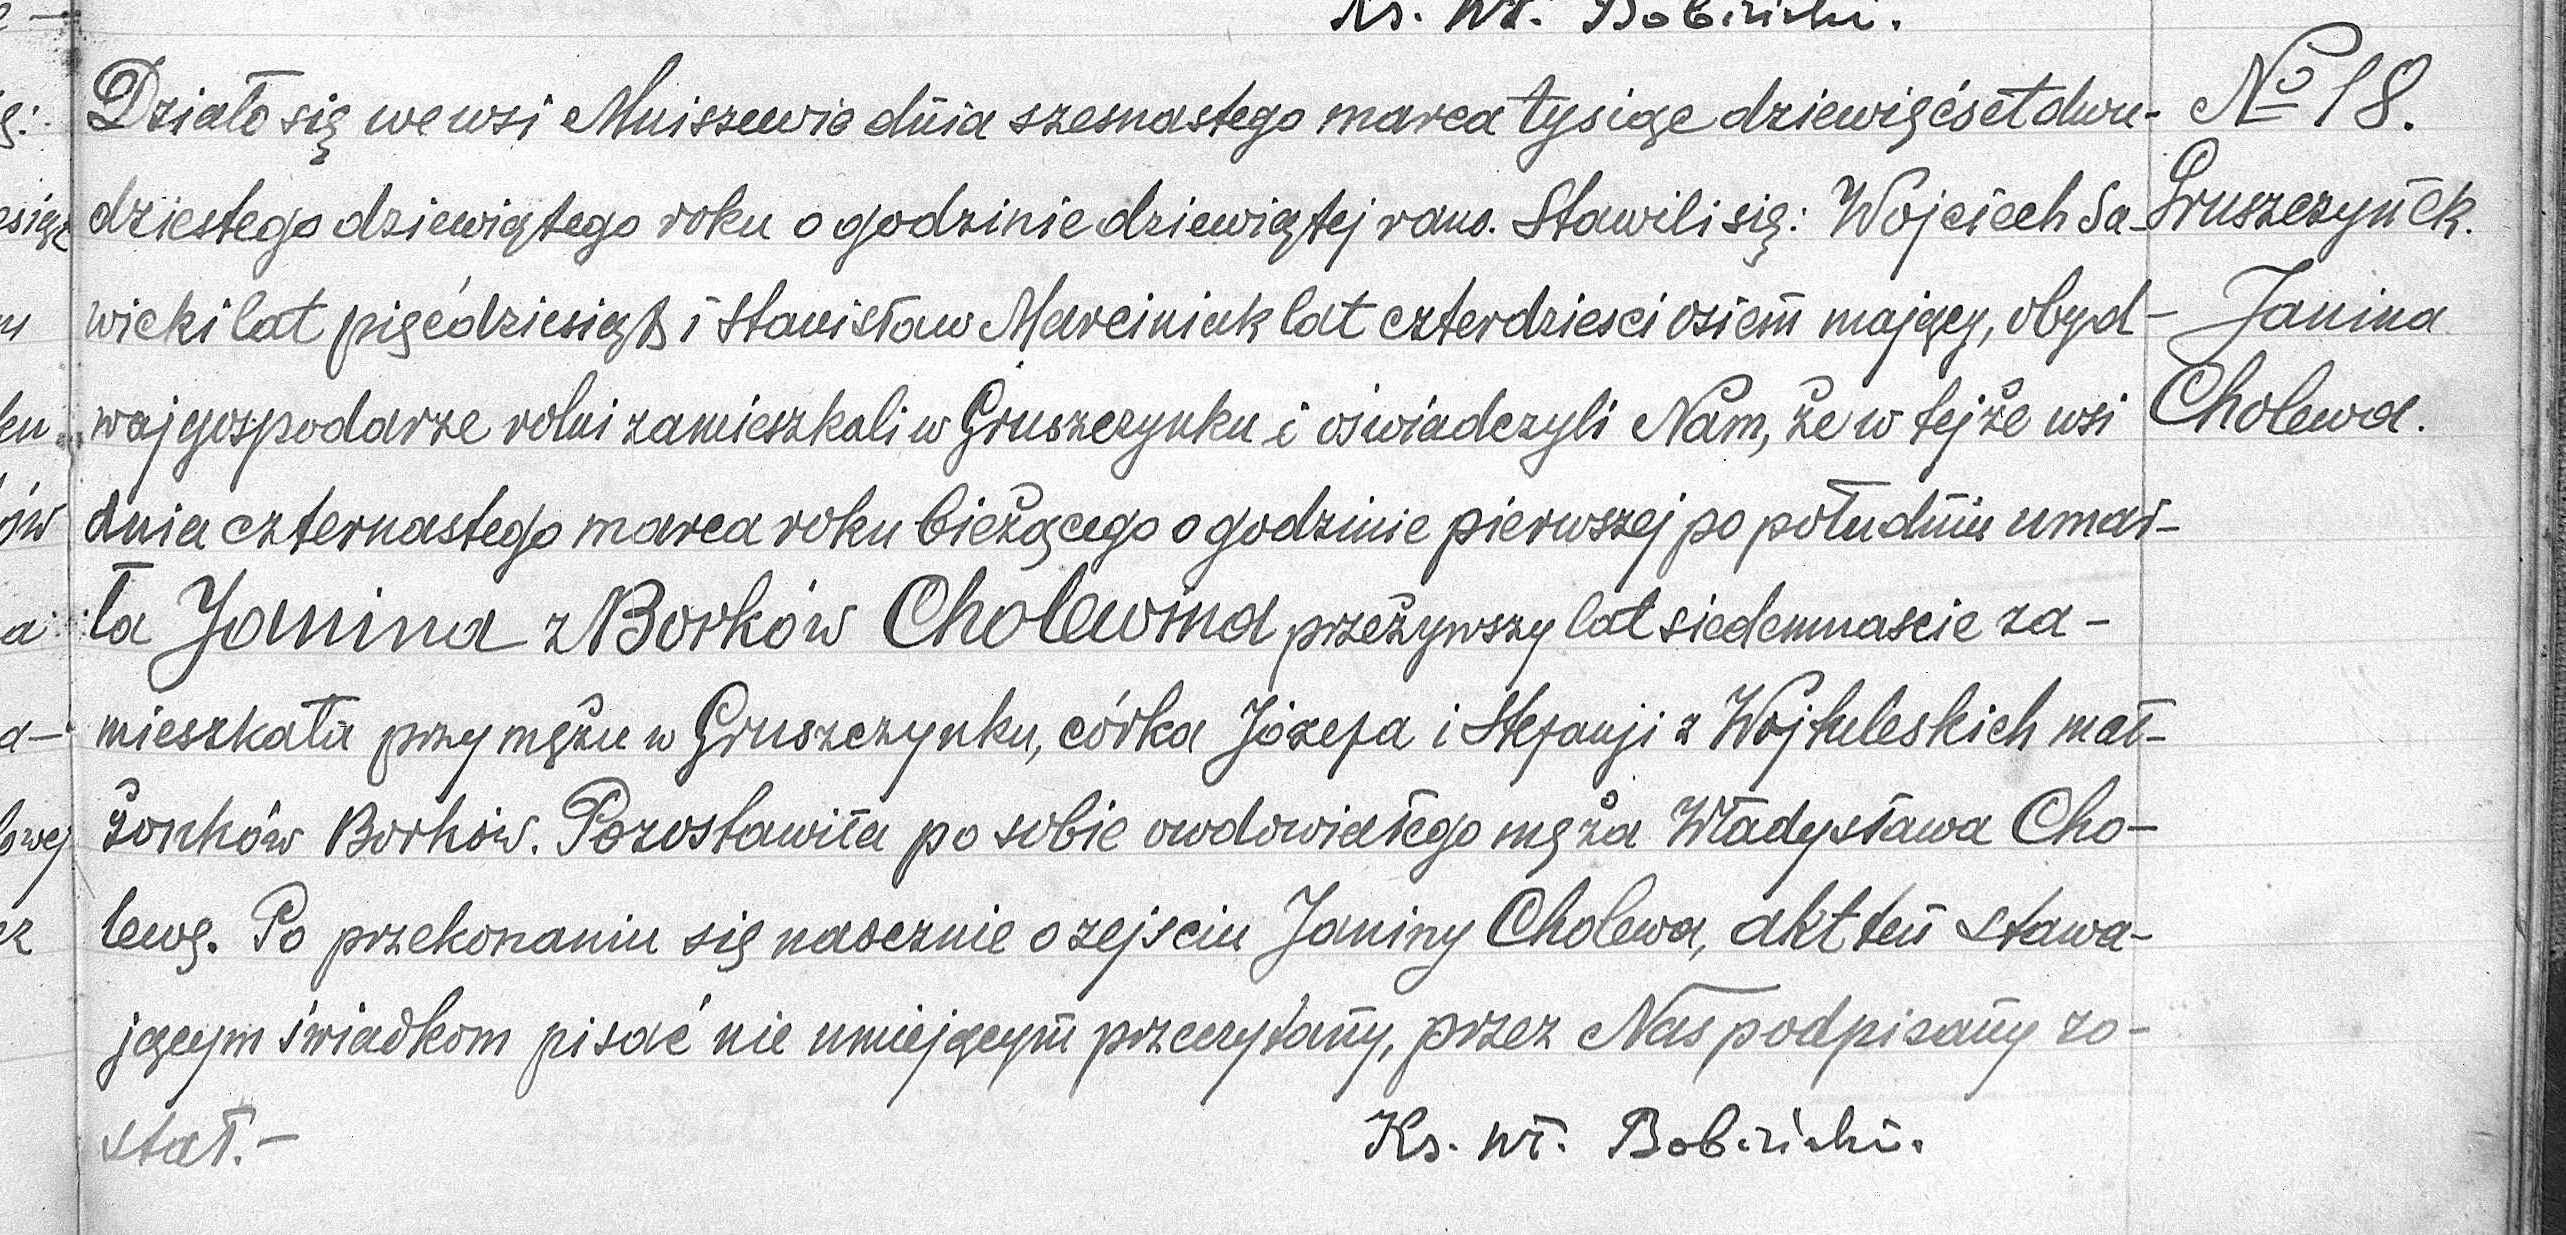 Ks. Wł.
Działo się we wsi Mniszewie dnia szesnastego marca tysiąc dziewięćset dwu-
dziestego dziewiątego roku o godzinie dziewiątej rano. Stawili się: Wojciech Sa-
wicki lat pięćdziesiąt i Stanisław Marciniak lat czterdzieści osiem mający, obyd-
waj gospodarze rolni zamieszkali w Gruszczynku i oświadczyli Nam, że w tejże wsi
dnia czternastego marca roku bieżącego o godzinie pierwszej po południu umar-
ła Janina z Borków Cholewina przeżywszy lat siedemnaście za-
mieszkała przy mężu w Gruszczynku, córka Józefa i Stefanji z Wojtuleskich mał-
żonków Borków. Pozostawiła po sobie owdowiałego męża Władysława Cho-
lewę. Po przekonaniu się naocznie o zejściu Janiny Cholewa, akt ten stawa-
jącym świadkom pisać nie umiejącym przeczytany, przez Nas podpisany zo-
stał.-
Ks. Wł.
No 18.
Gruszczynek.
Janina
Cholewa.